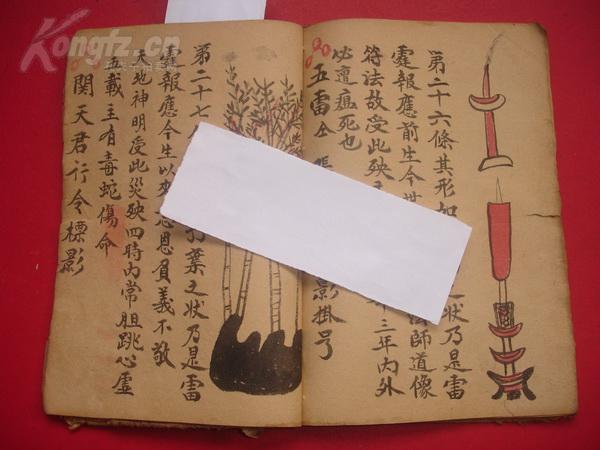 Kongfz.cn
第二十六條其形如之狀乃是雷
霆報應前生今世法師道像
符法故受此殃三年內外
必遭瘟死也
五雷影掛号
第二十七葉之狀乃是雷
霆報應今生以來恩負義不敬
天地神明受此災殃四時內常胆跳心虛
五載主有毒蛇傷命
関天君行令標影